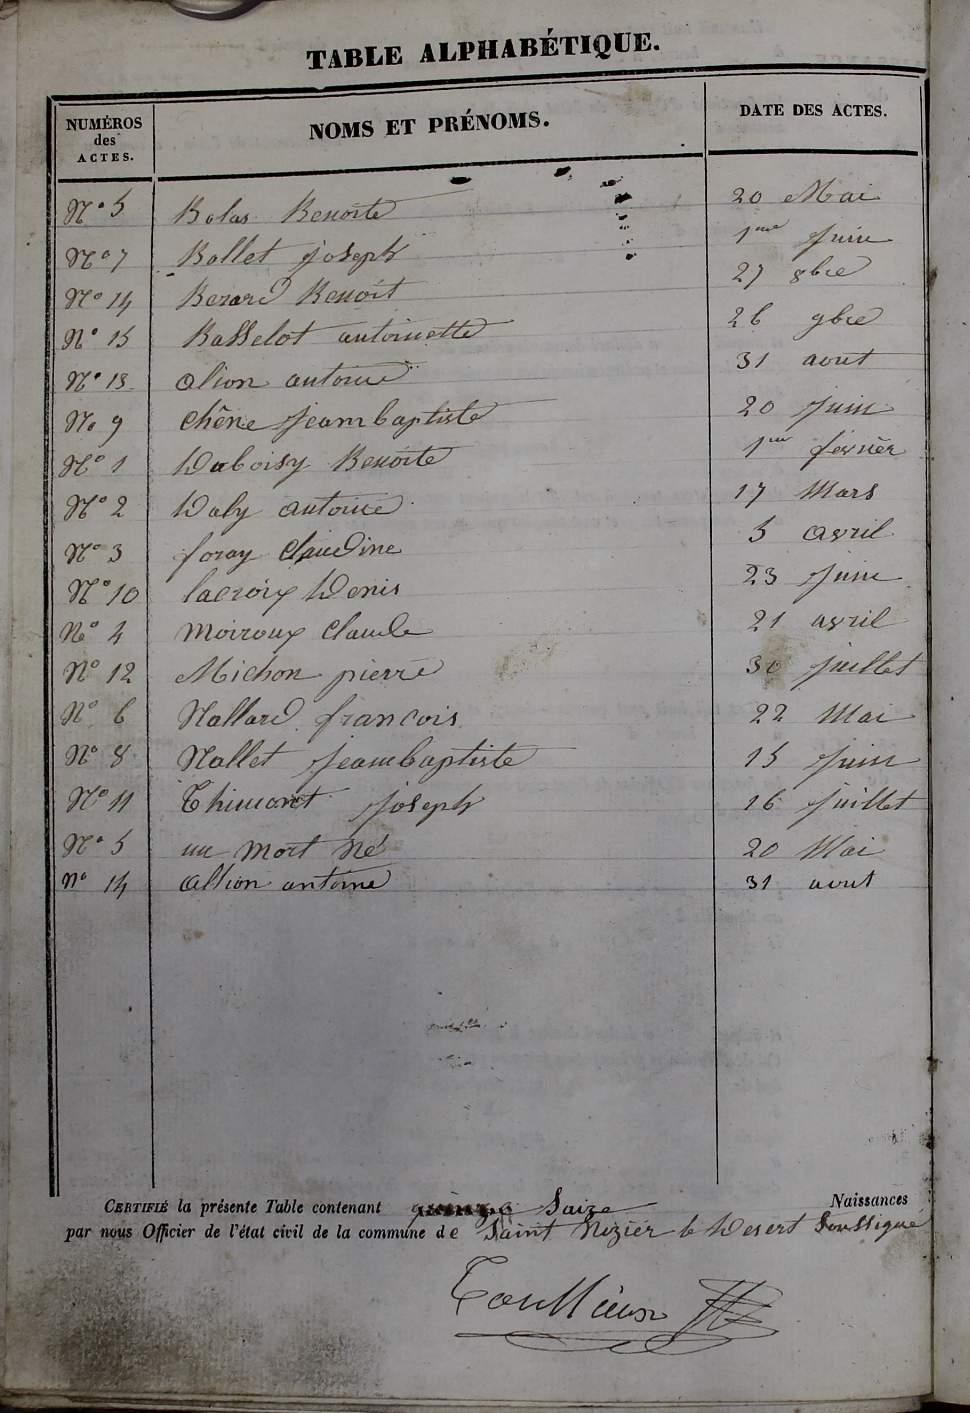 TABLE ALPHABÉTIQUE.
NUMÉROS des ACTES. NOMS ET PRÉNOMS. DATE DES ACTES.
N° 5 Bolas Benoite 20 Mai
N° 7 Bollet joseph 1er juin
N° 14 Berard Benoit 27 8bre
N° 15 Basselot antoinette 26 9bre
N° 13 alion antoine 31 aout
N° 9 chêne jeambaptiste 20 juin
N° 1 Duboisy Benoite 1er fevriér
N° 2 Daby antoine 17 Mars
N° 3 foray Claudine 5 avril
N° 10 lacroix Denis 23 juin
N° 4 moiroux claude 21 avril
N° 12 Michon pierre 30 juillet
N° 6 Nallard francois 22 Mai
N° 8 Nallet jeambaptiste 15 juin
N° 11 Thimont joseph 16 juillet
N° 5 un mort né 20 Mai
n° 14 allion antoine 31 aout
CERTIFIÉ la présente Table contenant quinze Saize Naissances
par nous Officier de l'état civil de la commune de Saint Nizier le Desert Soussigné